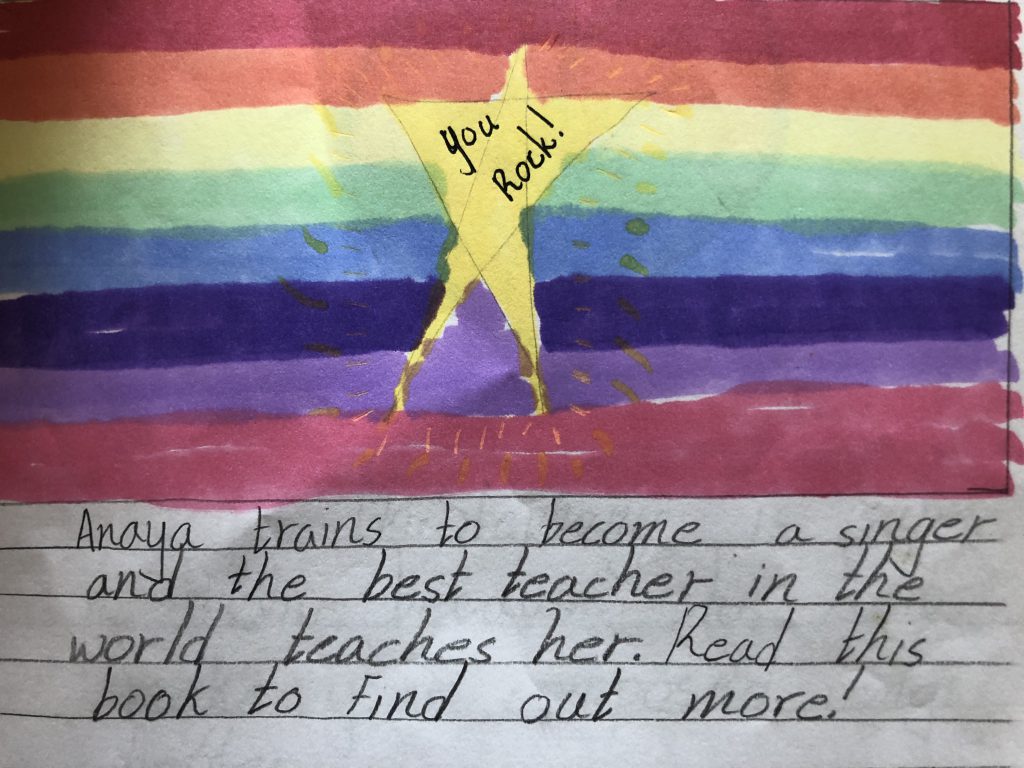 you
Rock!
Anaya trains to become a singer
and the best teacher in the
world teaches her. Read this
book to Find out more!